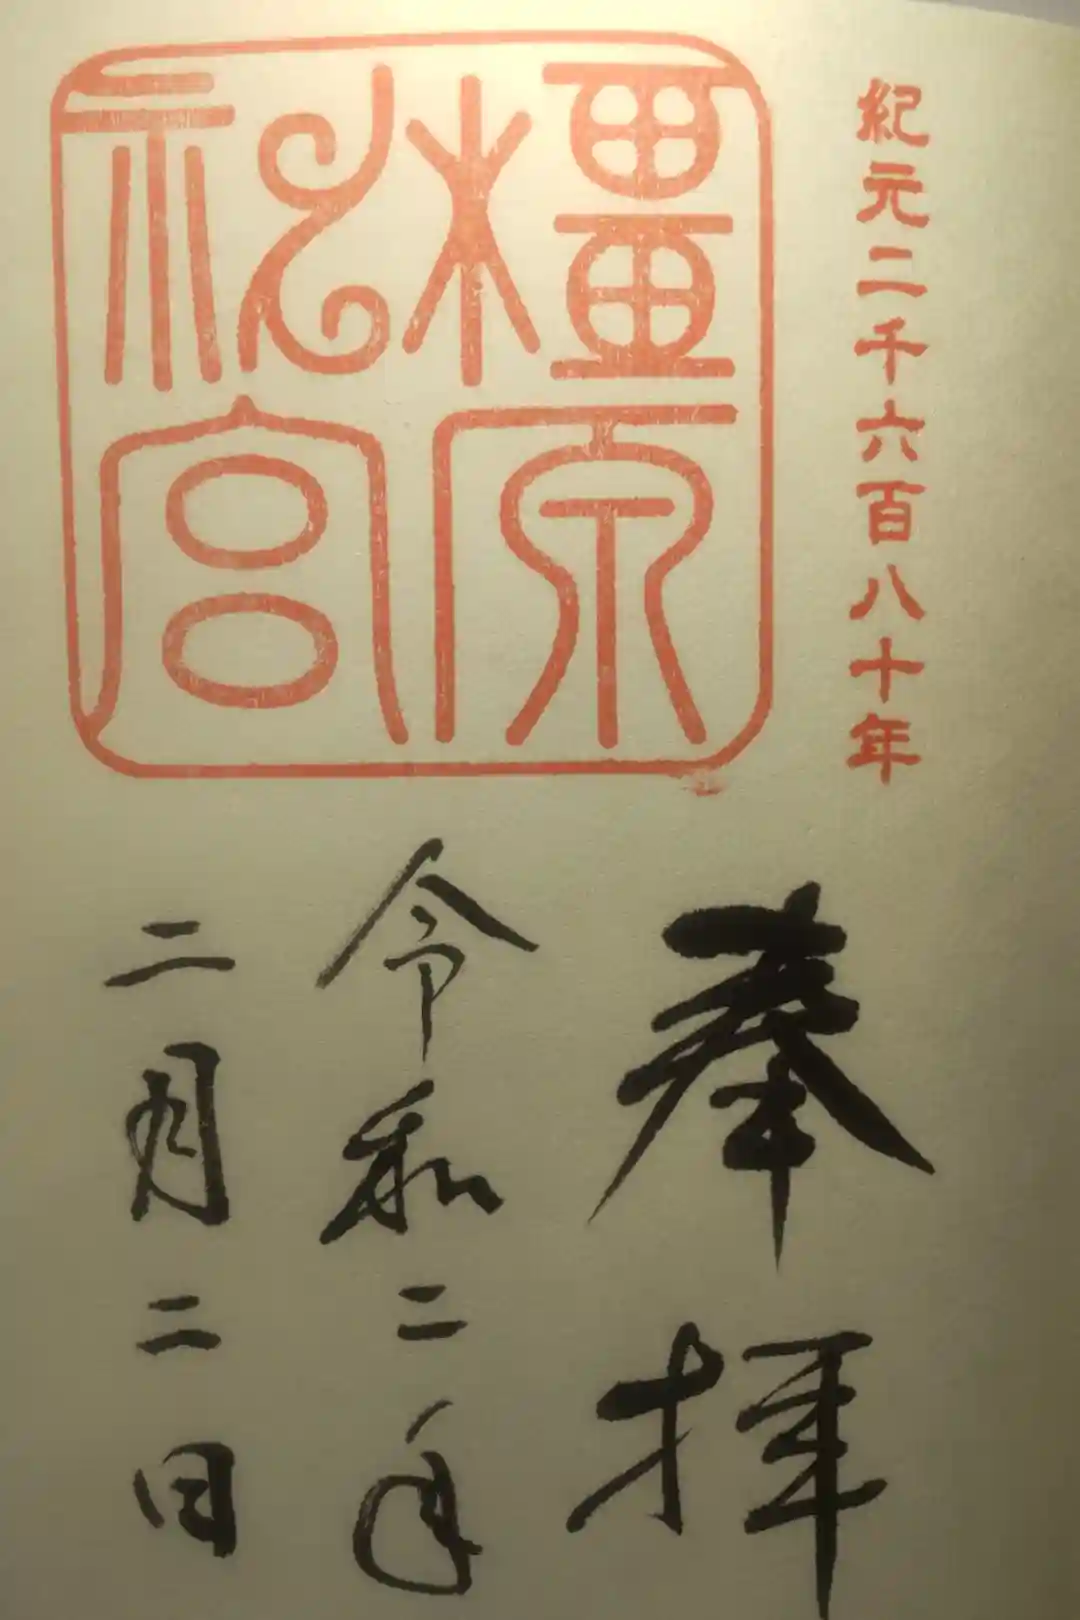 紀元二千六百八十年
橿原
神宮
奉拝
令和二年
二月二日